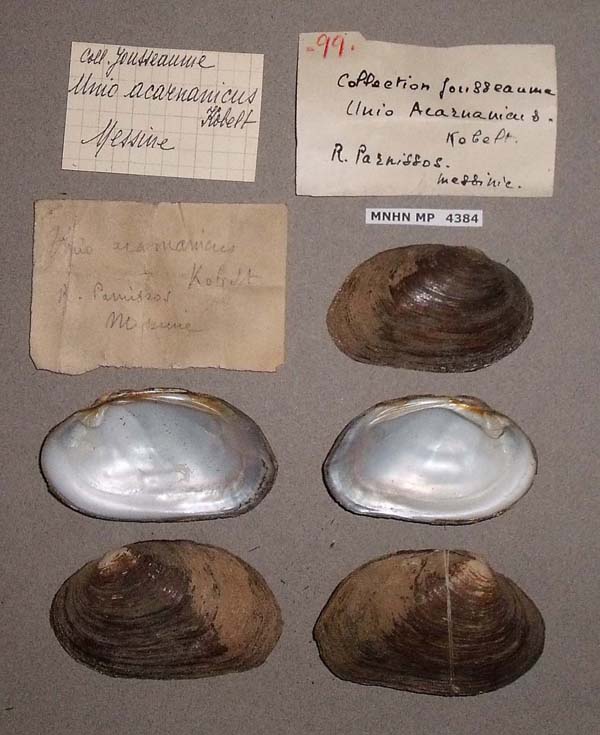 Coll. Jousseaume
Unio acarnanicus
Kobelt
Messine
99.
Collection Jousseaume
Unio Acarnanicus.
Kobelt.
R. Parnissos.
Messinie.
MNHN MP 4384
Unio acarnanicus
Kobelt
R. Parnissos